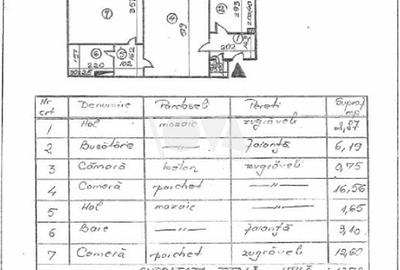 7
357
4
429
293
220x40
1
202
6
220
5
102
162
157
Nr crt Denumire Pardoseli Pereti Supraf mp
1 Hol mozaic zugrăveli 3,87
2 Bucătărie —"— faianță 6,19
3 Cămară beton zugrăveli 0,75
4 Cameră parchet —"— 16,56
5 Hol mozaic —"— 1,65
6 Baie —"— faianță 3,10
7 Cameră parchet zugrăveli 12,60